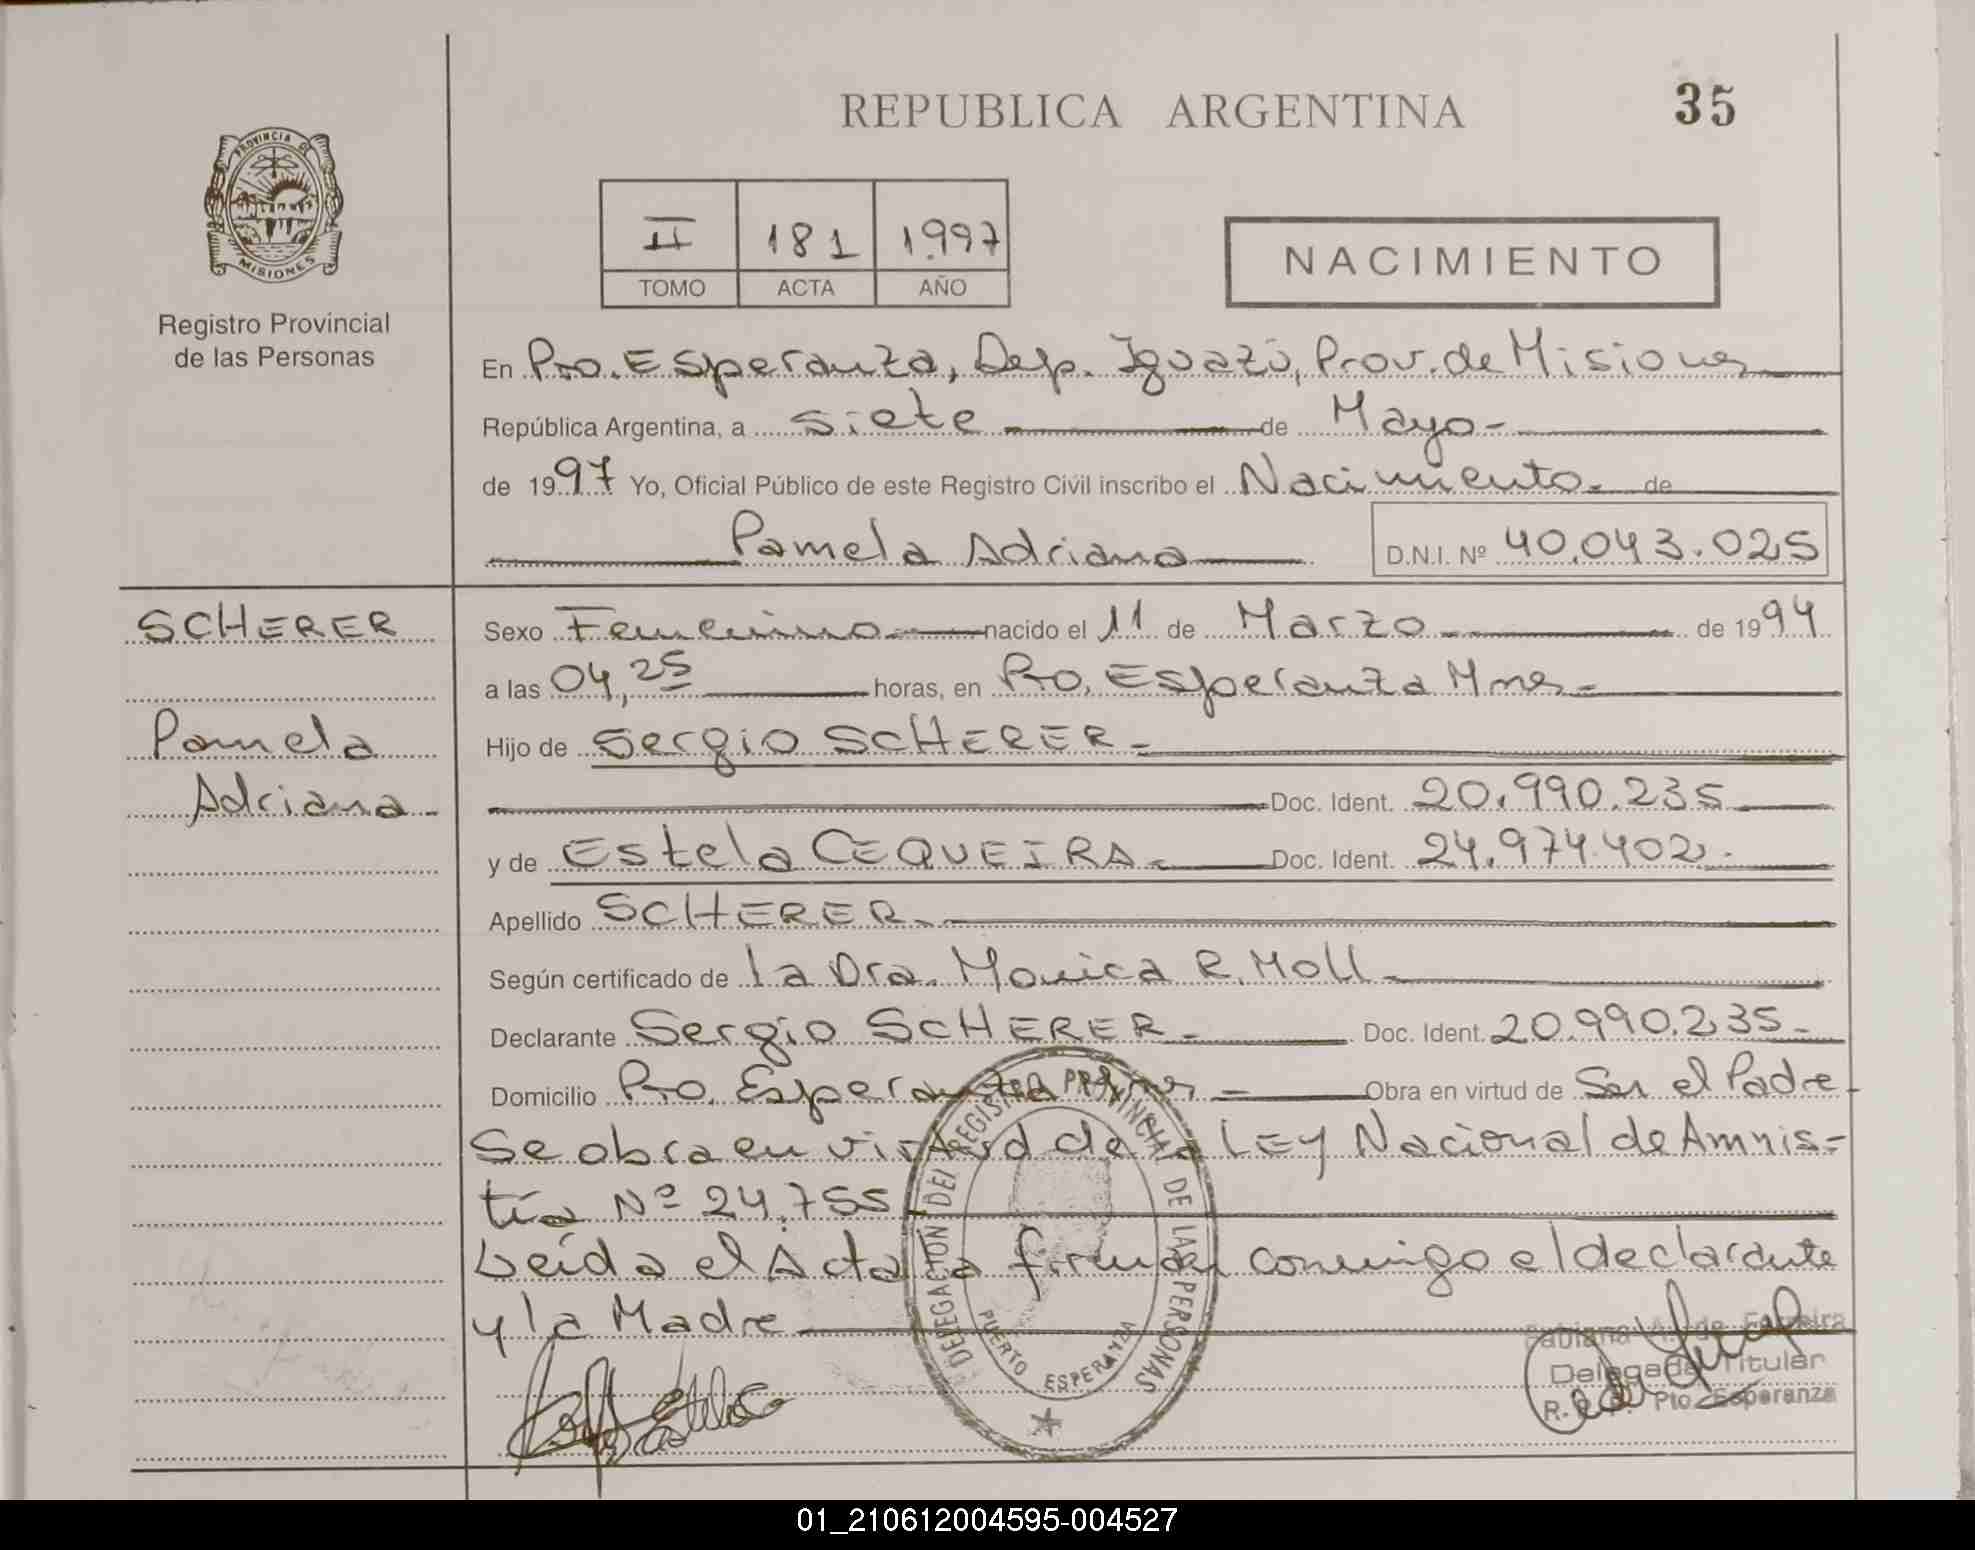 REPUBLICA ARGENTINA
35
PROVINCIA DE
MISIONES
Registro Provincial
de las Personas
II 181 1.997
TOMO ACTA AÑO
NACIMIENTO
En Pto. Esperanza, Dep. Iguazú, Prov. de Misiones
República Argentina, a siete de Mayo-
de 1997 Yo, Oficial Público de este Registro Civil inscribo el Nacimiento. de
Pamela Adriana D.N.I. Nº 40.043.025
SCHERER
Pamela
Adriana-
Sexo Femenino nacido el 11 de Marzo de 1994
a las 04,25 horas, en Pto. Esperanza Mnes-
Hijo de Sergio SCHERER-
Doc. Ident. 20.990.235
y de Estela CEQUEIRA- Doc. Ident. 24.974.402.
Apellido SCHERER-
Según certificado de la Dra. Monica R. Moll-
Declarante Sergio SCHERER- Doc. Ident. 20.990.235-
Domicilio Pto. Esperanza Mnes- Obra en virtud de Ser el Padre-
Se obra en virtud de la LEy Nacional de Amnis-
tía Nº 24.755
Leída el Acta la firman conmigo el declarante
y la Madre
DELEGACION DEL REGISTRO PROVINCIAL DE LAS PERSONAS
PUERTO ESPERANZA
Fabiana A. de Ferreira
Delegada Titular
R. P. P. Pto. Esperanza
01_210612004595-004527